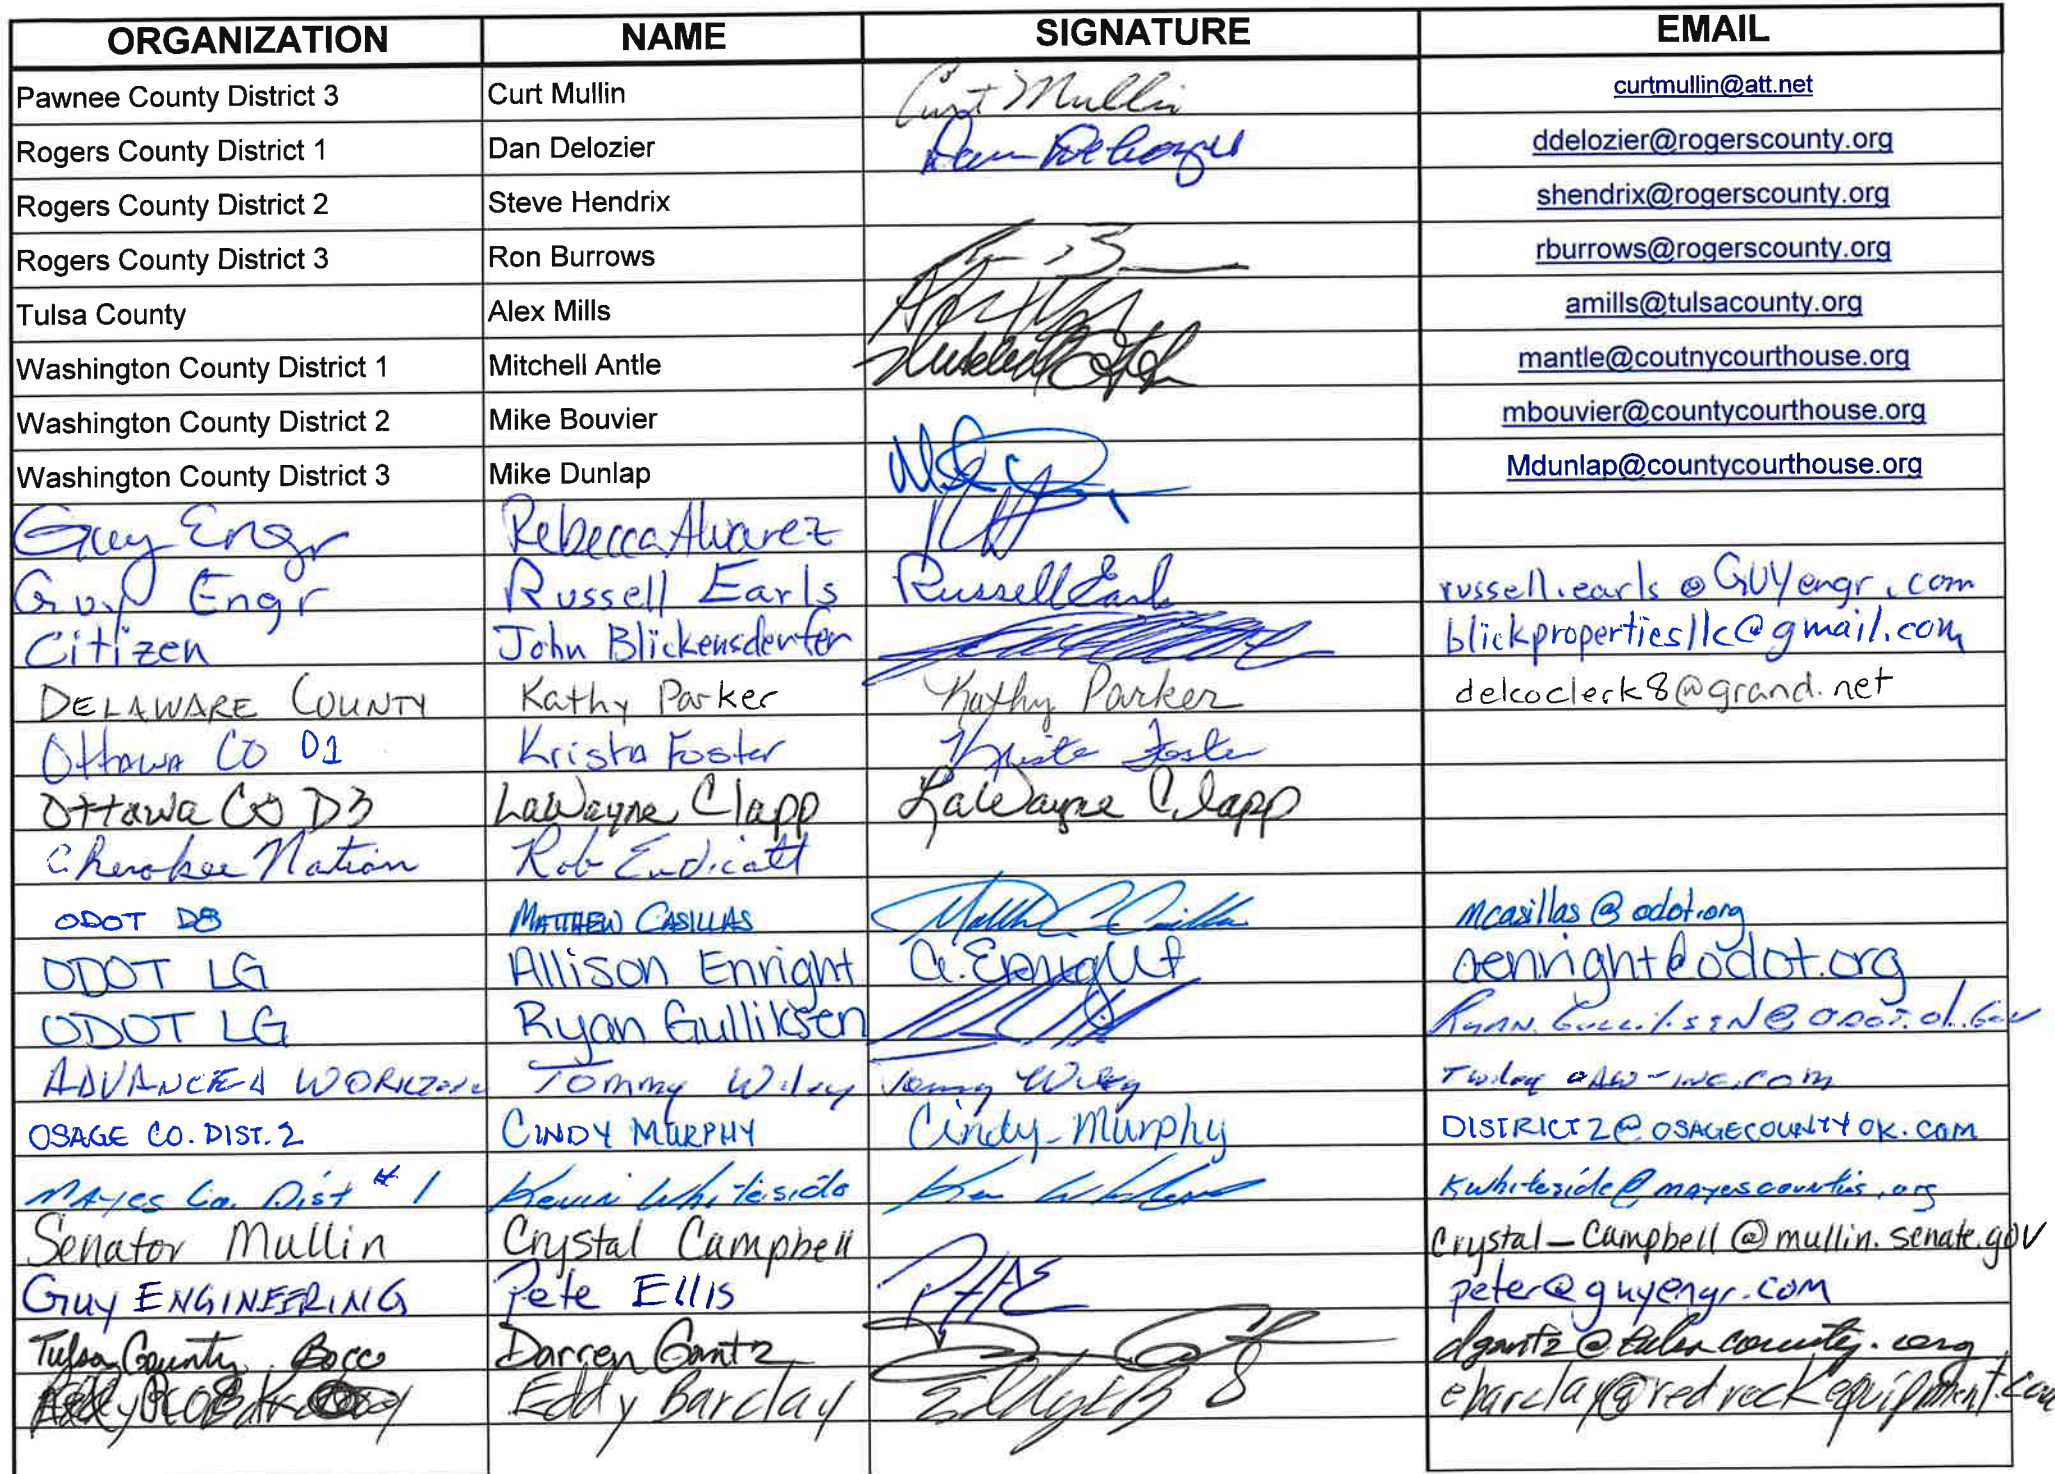 ORGANIZATION NAME SIGNATURE EMAIL
Pawnee County District 3 Curt Mullin Curt Mullin curtmullin@att.net
Rogers County District 1 Dan Delozier Dan Delozier ddelozier@rogerscounty.org
Rogers County District 2 Steve Hendrix shendrix@rogerscounty.org
Rogers County District 3 Ron Burrows rburrows@rogerscounty.org
Tulsa County Alex Mills amills@tulsacounty.org
Washington County District 1 Mitchell Antle mantle@coutnycourthouse.org
Washington County District 2 Mike Bouvier mbouvier@countycourthouse.org
Washington County District 3 Mike Dunlap Mdunlap@countycourthouse.org
Guy Engr Rebecca Alvarez
Guy Engr Russell Earls Russell Earls russell.earls@GUYengr.com
Citizen John Blickensderfer blickpropertiesllc@gmail.com
DELAWARE COUNTY Kathy Parker Kathy Parker delcoclerk8@grand.net
Ottawa CO D1 Krista Foster Krista Foster
Ottawa CO D3 LaWayne Clapp LaWayne Clapp
Cherokee Nation Rob Endicott
ODOT D8 MATTHEW CASILLAS mcasillas@odot.org
ODOT LG Allison Enright a. Enright aenright@odot.org
ODOT LG Ryan Gulliksen Ryan.Gulliksen@odot.ok.Gov
ADVANCED WORKZONE Tommy Wiley Tommy Wiley Twiley@AW-inc.com
OSAGE CO. DIST. 2 CINDY MURPHY Cindy Murphy DISTRICT2@OSAGECOUNTYOK.COM
MAyes Co. Dist #1 Kevin Whiteside kwhiteside@mayescounties.org
Senator Mullin Crystal Campbell Crystal_Campbell@mullin.senate.gov
Guy ENGINEERING Pete Ellis peter@guyengr.com
Tulsa County Bocc Darren Gantz dgantz@tulsacounty.org
Eddy Barclay ebarclay@redrockequipment.com